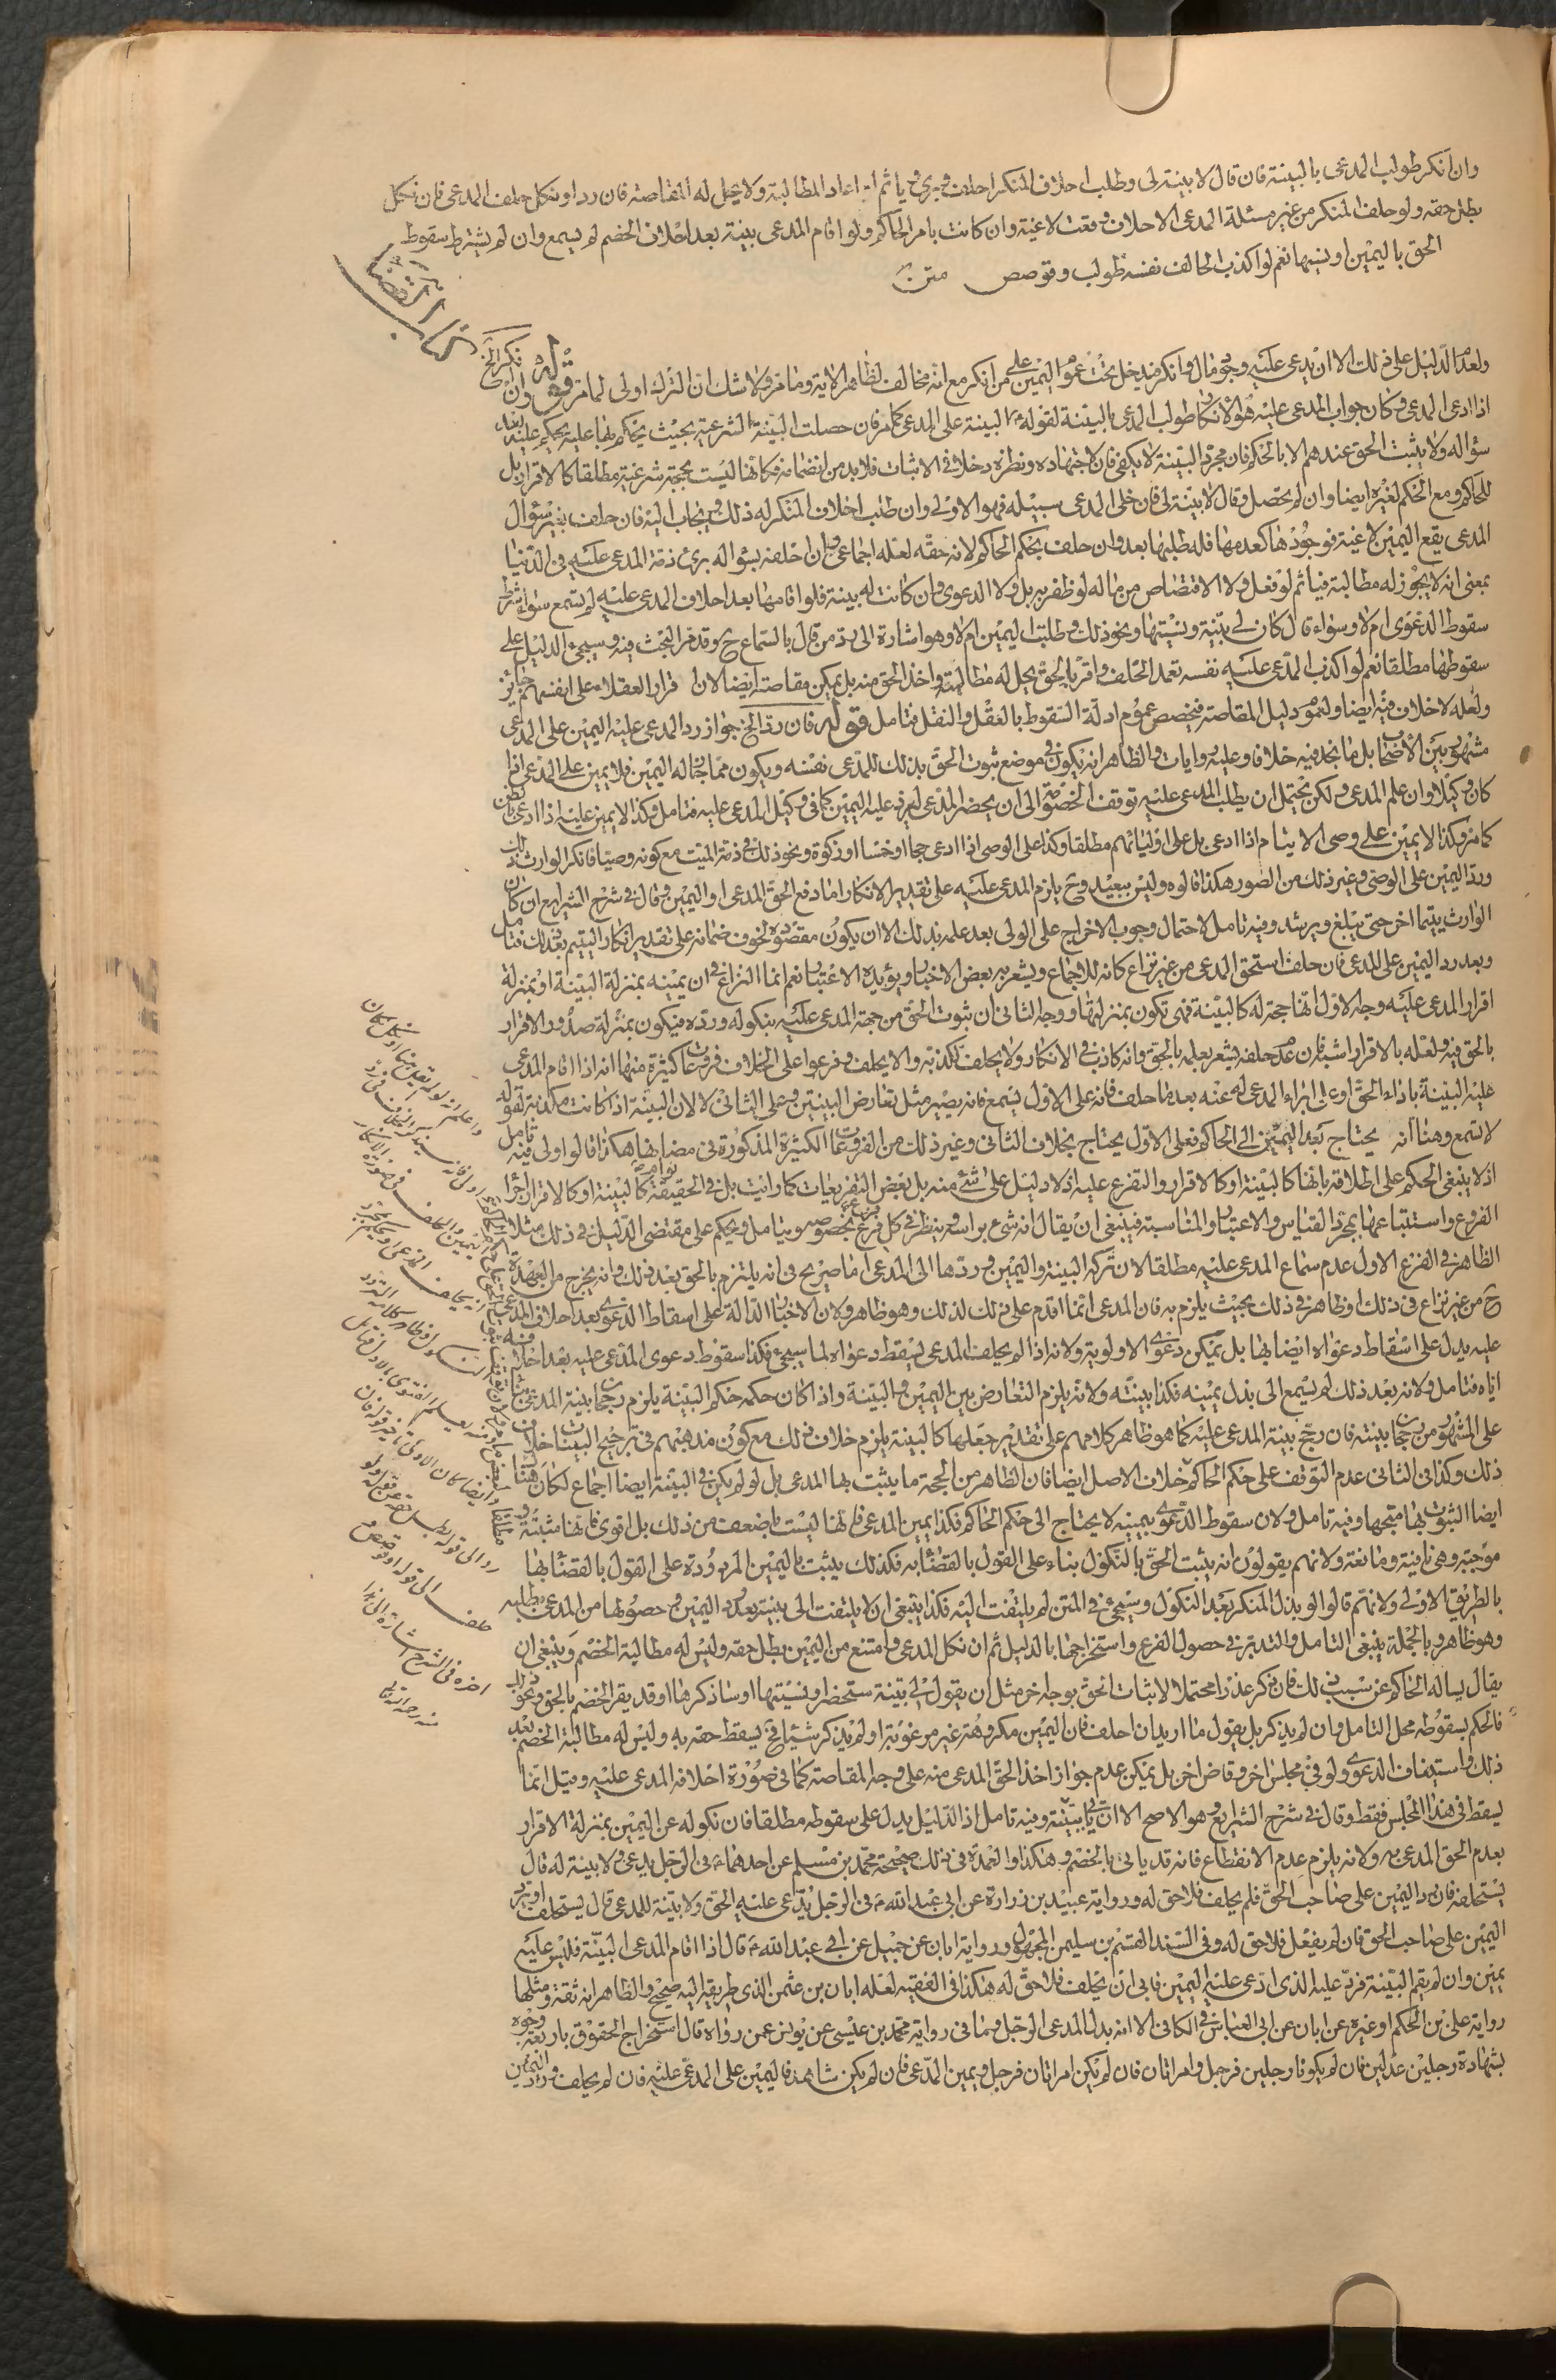 وان انكر طولب المدعى بالبينة فان قال لا بينة لى وطلب احلاف المنكر احلف وبرئ وياثم ان اعاد المطالبة ولا يحل له المقاصة فان رد او نكل حلف المدعى فان نكل
بطل حقه ولو حلف المنكر من غير مسئلة المدعى الاحلاف وقعت لاغية وان كانت بامر الحاكم ولو اقام المدعى بينة بعد احلاف الخصم لم يسمع وان لم يشترط سقوط
الحق باليمين او نسيها نعم لو اكذب الحالف نفسه طولب وقوصص متن
كتاب القضا
ولعدم الدليل على ذلك الا ان يدعى عليه وجوب مال وانكر فيدخل تحت عموم اليمين على من انكر مع انه مخالف لظاهر الاية وما مر ولا شك ان الترك اولى لما مر قوله وان نكر الخ
اذا ادعى المدعى وكان جواب المدعى عليه هو الانكار طولب المدعى بالبينة لقوله البينة على المدعى كما مر فان حصلت البينة الشرعية بحيث يحكم بها عليه يحكم عليه بعد
سؤاله ولا يثبت الحق عندهم الا بالحكم فان مجرد البينة لا يكفى فان لاجتهاده ونظره دخلا فى الاثبات فلا بد من انضمامه فكانها ليست بحجة شرعية مطلقا كالاقرار بل
للحاكم ومع الحكم لغيره ايضا وان لم يحصل وقال لا بينة لى فان خلى المدعى سبيله فهو الاولى وان طلب احلاف المنكر له ذلك ويجاب اليه فان حلف بغير سؤال
المدعى يقع اليمين لاغية فوجودها كعدمها فله طلبها بعد وان حلف بحكم الحاكم لانه حقه لعله اجماعى وان احلفه بسؤاله برئ ذمة المدعى عليه فى الدنيا
بمعنى انه لا يجوز له مطالبة فياثم لو فعل ولا الاقتصاص من ماله لو ظفر به بل ولا الدعوى وان كانت له بينة فلو اقامها بعد احلاف المدعى عليه لم تسمع سواء شرط
سقوط الدعوى ام لا وسواء قال كان لى بينة ونسيتها ونحو ذلك وطلبت اليمين ام لا وهو اشارة الى رد من قال بالسماع ح وقد مر البحث فيه وسيجئ الدليل على
سقوطها مطلقا نعم لو اكذب المدعى عليه نفسه تعمد الحلف واقر بالحق يحل له مطالبته واخذ الحق منه بل يمكن مقاصته ايضا لان اقرار العقلاء على انفسهم جائز
ولعله لا خلاف فيه ايضا ولعموم دليل المقاصة فيخصص عموم ادلة السقوط بالعقل والنقل فتامل قوله فان رد الخ جواز رد المدعى عليه اليمين على المدعى
مشهور بين الاصحاب بل ما نجد فيه خلافا وعليه روايات والظاهر انه يكون فى موضع ثبوت الحق بذلك للمدعى نفسه ويكون مما جاز له اليمين فلا يمين على المدعى اذا
كان وكيلا وان علم المدعى ولكن يحتمل ان يطلب المدعى عليه توقف الخصومة الى ان يحضر المدعى ليرد عليه اليمين كما فى وكيل المدعى عليه فتامل وكذا لا يمين عليه اذا ادعى بالظن
كما مر وكذا لا يمين على وصى الايتام اذا ادعى بل على اوليائهم مطلقا وكذا على الوصى اذا ادعى حجا او خمسا او زكوة ونحو ذلك فى ذمة الميت مع كونه وصيا فانكر الوارث ذلك
ورد اليمين على الوصى وغير ذلك من الصور هكذا قالوه وليس ببعيد وح يلزم المدعى عليه على تقدير الانكار اما دفع الحق المدعى او اليمين وقال فى شرح الشرايع ان كان
الوارث يتيما اخر حتى يبلغ ويرشد وفيه تامل لاحتمال وجوب الاخراج على الولى بعد علمه بذلك الا ان يكون مقصوده لخوف ضمانه على تقدير انكار اليتيم بعد ذلك فتامل
وبعد رد اليمين على المدعى فان حلف استحق المدعى من غير نزاع كانه للاجماع ويشعر به بعض الاخبار ويؤيده الاعتبار نعم انما النزاع فى ان يمينه بمنزلة البينة او بمنزلة
اقرار المدعى عليه وجه الاول انها حجة له كالبينة فهى تكون بمنزلتها ووجه الثانى ان ثبوت الحق من جهة المدعى عليه بنكوله ورده فيكون بمنزلة صدور الاقرار
بالحق منه ولعله بالاقرار اشبه فان عدم حلفه يشعر بعلمه بالحق وانه كاذب فى الانكار ولا يحلف لكذبه والا يحلف وفرعوا على الخلاف فروعا كثيرة منها انه اذا اقام المدعى
عليه البينة باداء الحق او على ابراء المدعى له عنه بعد ما حلف فانه على الاول يسمع فانه يصير مثل تعارض البينتين وعلى الثانى لا لان البينة اذا كانت مكذبة لقوله
لا تسمع وهنا انه يحتاج بعد اليمين الى الحاكم فعلى الاول يحتاج بخلاف الثانى وغير ذلك من الفروعات الكثيرة المذكورة فى مضانها هكذا قالوا ولى فيه تامل
اذ لا ينبغى الحكم على اطلاقه بانها كالبينة او كالاقرار والتفريع عليه اذ لا دليل على شئ منه بل بعض التفريعات كما رايت بل فى الحقيقة كالبينة او كالاقرار
الفروع واستتباعها بمجرد القياس والاعتبار والمناسبة فينبغى ان يقال انه شئ براسه وينظر فى كل فرع بخصوصه ويتامل ويحكم على مقتضى الدليل فى ذلك مثلا
الظاهر فى الفرع الاول عدم سماع المدعى عليه مطلقا لان تركه البينة واليمين وردها الى المدعى اما صريح فى انه يلتزم بالحق بعد ذلك وانه يخرج من العهدة
ح من غير نزاع فى ذلك او ظاهر فى ذلك بحيث يلزم به فان المدعى انما اقدم على ذلك لذلك وهو ظاهر ولان الاخبار الدالة على اسقاط الدعوى بعد احلاف المدعى
عليه يدل على اسقاط دعواه ايضا بها بل يمكن دعوى الاولوية ولانه اذا لم يحلف المدعى ليسقط دعواه لما سيجئ فكذا سقوط دعوى المدعى عليه بعد احلافه
اياه فتامل ولانه بعد ذلك لم يسمع الى بذل يمينه فكذا بينته ولانه يلزم التعارض بين اليمين والبينة واذا كان حكمه حكم البينة يلزم رجحان بينة المدعى
على المشهور من رجحان بينته فان رجح بينة المدعى عليه كما هو ظاهر كلامهم على تقدير جعلها كالبينة يلزم خلاف ذلك مع كون مذهبهم فى ترجيح البينات خلاف
ذلك وكذا فى الثانى عدم التوقف على حكم الحاكم خلاف الاصل ايضا فان الظاهر من الحجة ما يثبت بها المدعى بل لو لم يكن فى البينة ايضا اجماع لكان هنا
ايضا الثبوت بها متجها وفيه تامل ولان سقوط الدعوى بيمينه لا يحتاج الى حكم الحاكم فكذا يمين المدعى فانها ليست باضعف من ذلك بل اقوى فانها مثبتة
موجبة وهى نافية وما نعة ولانهم يقولون انه يثبت الحق بالنكول بناء على القول بالقضاء به فكذلك يثبت باليمين المردودة على القول بالقضاء بها
بالطريق الاولى ولانهم قالوا لو بذل المنكر بعد النكول وسيجئ فى المتن لم يلتفت اليه فكذا ينبغى ان لا يلتفت الى بينته بعد رد اليمين وحصولها من المدعى بطلبه
وهو ظاهر وبالجملة ينبغى التامل والتدبر فى حصول الفرع واستخراجها بالدليل ثم ان نكل المدعى وامتنع من اليمين بطل حقه وليس له مطالبة الخصم وينبغى ان
يقال يساله الحاكم عن سبب ذلك فان ذكر عذرا محتملا لاثبات الحق بوجه اخر مثل ان يقول لى بينة ستحضر او نسيتها او ساذكرها او قد يقر الخصم بالحق ونحو ذلك
فالحكم بسقوطه محل التامل وان لم يذكر بل يقول ما اريد ان احلف فان اليمين مكروهة غير مرغوبة او لم يذكر شيئا فح يسقط حقه به وليس له مطالبة الخصم بعد
ذلك واستيفاف الدعوى ولو فى مجلس اخر وقاض اخر بل يمكن عدم جواز اخذ الحق المدعى منه على وجه المقاصة كما فى صورة احلافه المدعى عليه وقيل انما
يسقط فى هذا المجلس فقط وقال فى شرح الشرايع وهو الاصح الا ان ياتى ببينة وفيه تامل اذ الدليل يدل على سقوطه مطلقا فان نكوله عن اليمين بمنزلة الاقرار
بعدم الحق المدعى به ولانه يلزم عدم الانقطاع فانه قد ياتى بالخصم وهكذا والعمدة فى ذلك صحيحة محمد بن مسلم عن احدهما فى الرجل يدعى ولا بينة له قال
يستحلفه فان رد اليمين على صاحب الحق فلم يحلف فلا حق له ورواية عبيد بن زرارة عن ابى عبد الله فى الرجل يدعى عليه الحق ولا بينة للمدعى قال يستحلف او يرد
اليمين على صاحب الحق فان لم يفعل فلا حق له وفى السند القسم بن سليمن المجهول ورواية ابان عن جميل عن ابى عبد الله قال اذا اقام المدعى البينة فليس عليه
يمين وان لم يقم البينة فرد عليه الذى ادعى عليه اليمين فابى ان يحلف فلا حق له هكذا فى الفقيه لعله ابان بن عثمن الذى طريقه اليه صحيح والظاهر انه ثقة ومثلها
رواية على بن الحكم او غيره عن ابان عن ابى العباس فى الكافى الا انه بدل المدعى الرجل وما فى رواية محمد بن عيسى عن يونس عمن رواه قال استخراج الحقوق باربعة وجوه
بشهادة رجلين عدلين فان لم يكونا رجلين فرجل وامراتان فان لم يكن امراتان فرجل ويمين المدعى فان لم يكن شاهد فاليمين على المدعى عليه فان لم يحلف ورد اليمين